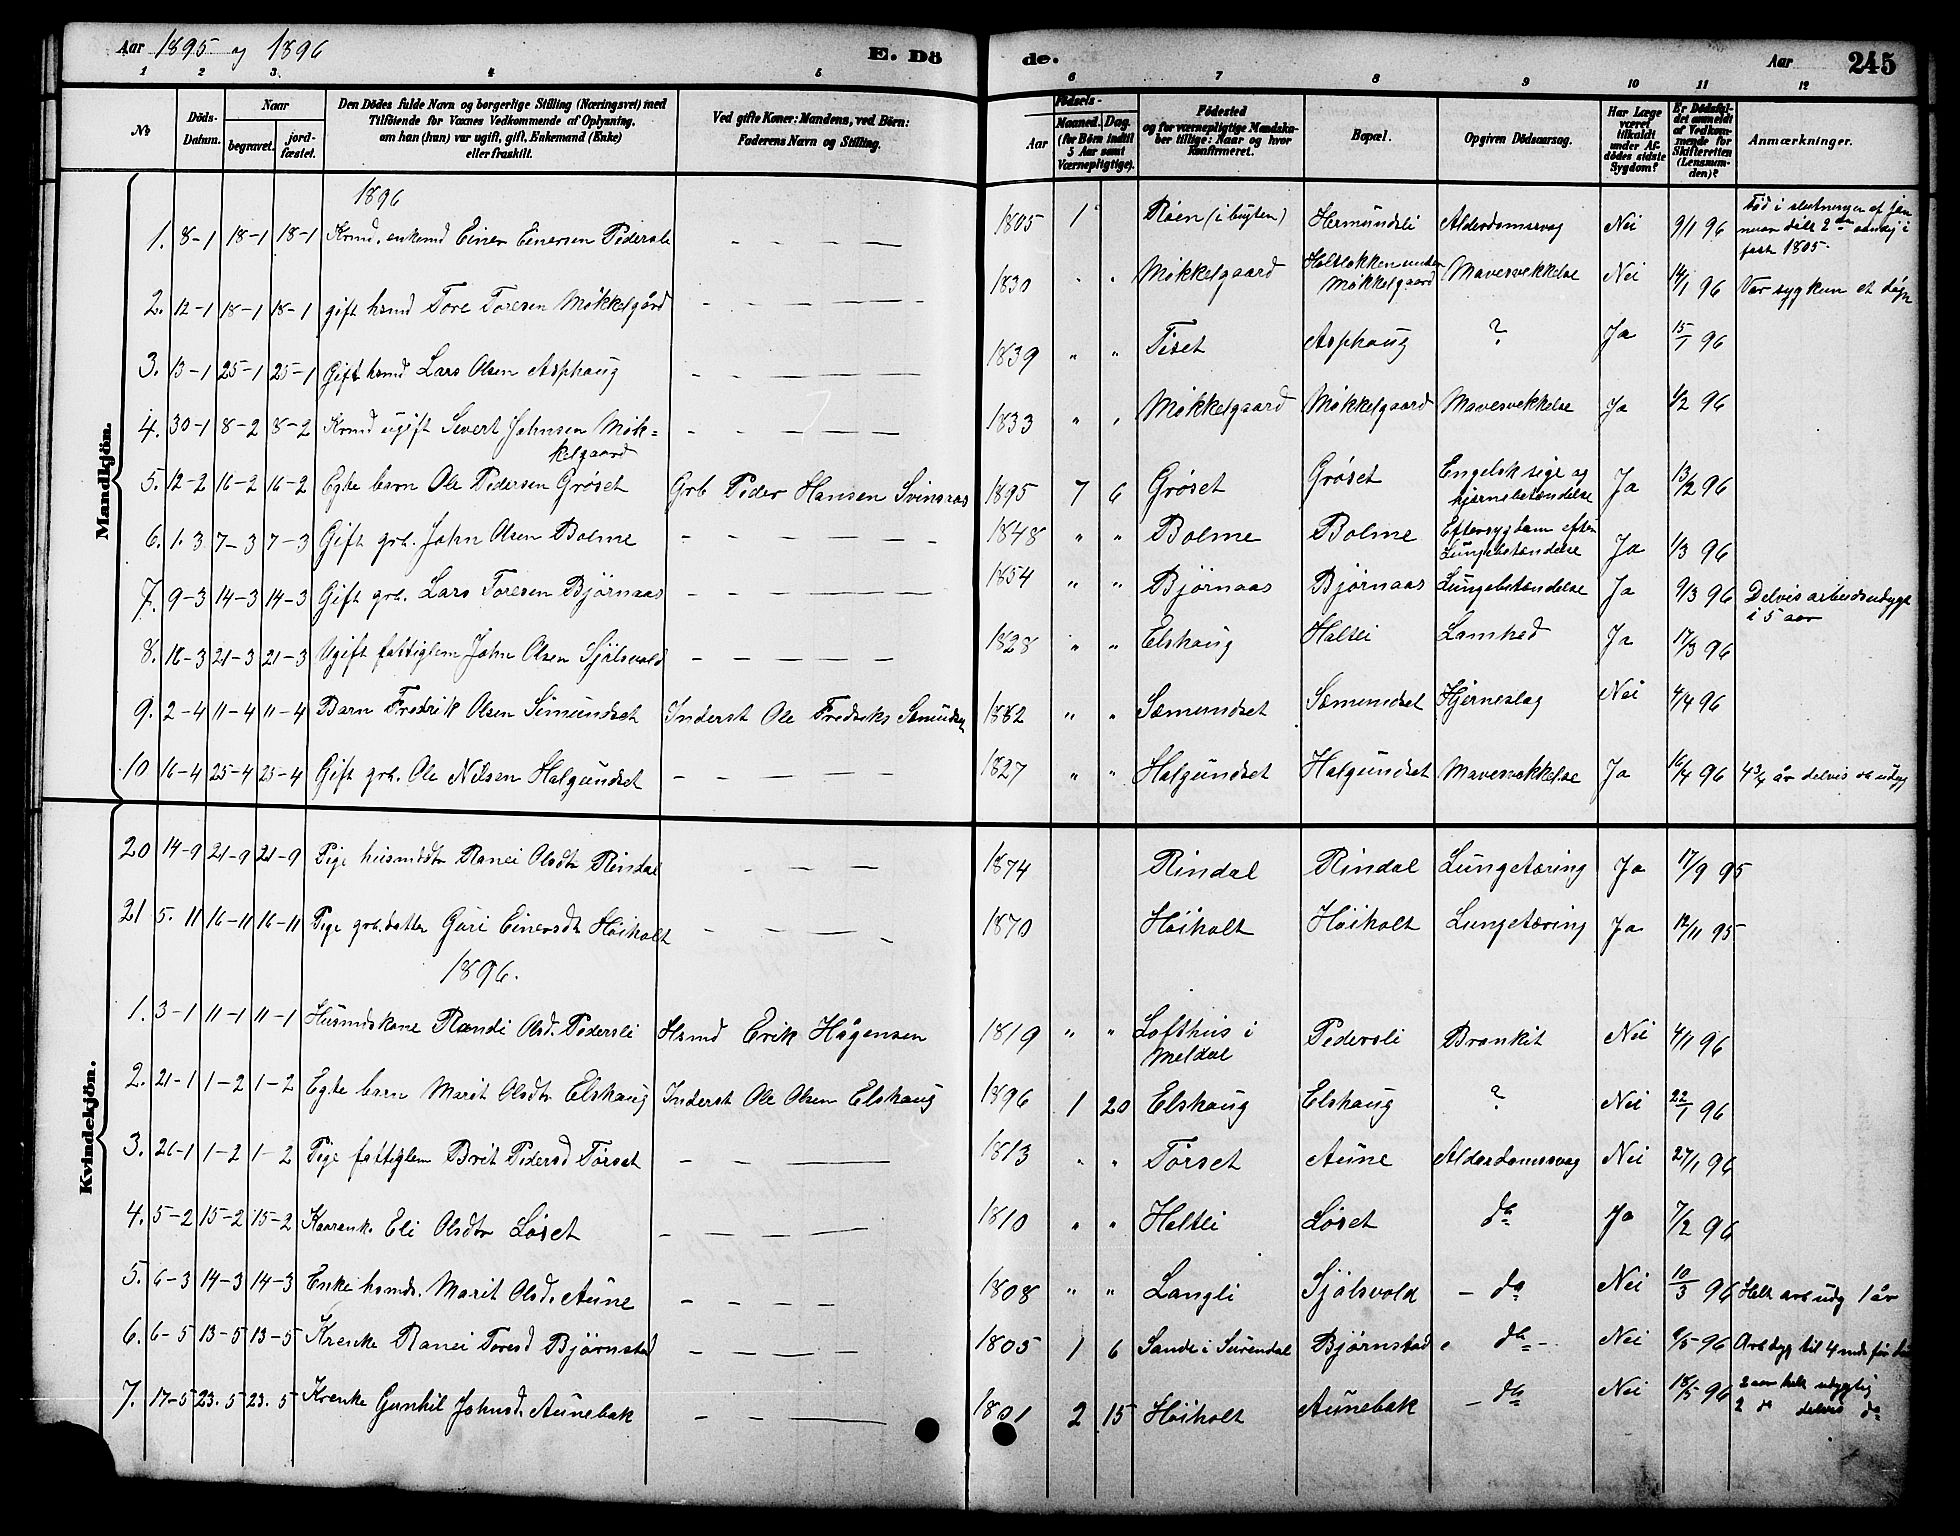 Aar 1895 og 1896 E. Dö de. Aar 245
1 2 3. 4 5 6 7 8 9 10 11 12
No
Döds-Datum.
Naar
begravet.
jordfæstet.
Den Dödes fulde Navn og borgerlige Stilling (Næringsvei) med
Tilföiende for Voxnes Vedkommende af Oplysning,
om han (hun) var ugift, gift, Enkemand (Enke)
eller fraskilt.
Ved gifte Koner: Mandens, ved Börn:
Faderens Navn og Stilling.
Födsels-
Aar
Maaned. Dag.
(for Börn indtil
5 Aar samt
Værnepligtige).
Födested
og for værnepligtige Mandska-
ber tillige: Naar og hvor
Konfirmeret.
Bopæl.
Opgiven Dödsaarsag.
Har Læge
været
tilkaldt
under Af-
dödes sidste
Sygdom?
Er Dödsfal-
det anmeldt
af Vedkom-
mende for
Skifteretten
(Lensman-
den)?
Anmærkninger.
Mandkjön.
1896
1. 8-1 18-1 18-1 Krmd. enkemd Einer Einersen Pedersli — — — — 1805 1 Röen (i bugten) Hermundsli Alderdomssvag Nei 9/1 96 Född i slutningen af januar døbt 2den søndag i faste 1805.
2. 12-1 18-1 18-1 gift hsmd Tore Toresen Møkkelgård — — — — 1830 " " Møkkelgaard Holtløkken under Møkkelgaard Mavesvekkelse Nei 14/1 96 Var syg kun et døgn
3. 13-1 25-1 25-1 Gift hsmd Lars Olsen Asphaug — — — — 1839 " " Tiset Asphaug ? Ja 15/1 96
4. 30-1 8-2 8-2 Krmd ugift Sivert Johnsen Møk=
kelgaard — — — — 1833 " " Møkkelgaard Møkkelgaard Mavesvekkelse Ja 1/2 96
5. 12-2 16-2 16-2 Egte barn Ole Pedersen Grøset Grb Peder Hansen Svinsaas 1895 7 6 Grøset Grøset Engelsk syge og hjernebetændelse Ja 13/2 96
6. 1. 3 7-3 7-3 Gift grb. John Olsen Bolme — — — — 1848 " " Bolme Bolme Eftersygdom efter Lungebetændelse Ja 1/3 96
7. 9-3 14-3 14-3 Gift grb. Lars Toresen Bjørnaas — — — — 1854 " " Bjørnaas Bjørnaas Lungebetændelse Ja 9/3 96 Delvis arbeidsudygt i 5 aar
8. 16-3 21-3 21-3 Ugift fattiglem John Olsen Sjølsvold — — — — 1828 " " Elshaug Haltli Lamhed Ja 17/3 96
9. 2-4 11-4 11-4 Barn Fredrik Olsen Simundset Inderst Ole Fredriks 1882 " " Sæmundset Sæmundset Hjerneslag Nei 4/4 96
10 16-4 25-4 25-4 Gift grb. Ole Nilsen Halgundset — — — — 1827 " " Halgundset Halgundset Mavesvekkelse Ja 16/4 96 4 3/4 år delvis
Kvindekjön.
20 14-9 21-9 21-9 Pige husmdsdtr Ranei Olsdtr Rindal — — — 1874 Rindal Rindal Lungetæring Ja 17/9 95
21 5. 11 16-11 16-11 Pige grb.datter Guri Einersdt Høiholt — — — 1870 Høiholt Høiholt Lungetæring Ja 12/11 95
1896.
1. 3-1 11-1 11-1 Husmdskone Randi Olsd. Pedersli Hsmd Erik Hågensen 1819 " " Lofthus i Meldal Pedersli Bronkit Nei 4/1 96
2. 21-1 1-2 1-2 Egte barn Marit Olsdtr Elshaug Inderst Ole Olsen Elshaug 1896 1 20 Elshaug Elshaug ? Nei 22/1 96
3. 26-1 1-2 1-2 Pige fattiglem Brit Pedersd Tørset — — — 1813 " " Tørset Aune Alderdomssvag Nei 27/1 96
4. 5-2 15-2 15-2 Kaarenk. Eli Olsdtr Løset — — — — 1810 " " Haltli Løset do Ja 7/2 96
5. 6-3 14-3 14-3 Enke hsmds. Marit Olsd. Aune — — — — 1808 " " Langli Sjølsvold — do Nei 10/3 96 Helt arb udyg 1 år
6. 6-5 13-5 13-5 Krenke Ranei Toresd Bjørnstad — — — — 1805 1 6 Sande i Surendal Bjørnstad do — Nei 9/5 96 Arb dyg til 4 mdr før
7. 17-5 23. 5 23. 5 Krenke Gunhil Johnsd. Aunebak — — — 1801 2 15 Høiholt Aunebak — do Nei 18/5 96 2 aar helt udygtig
2 do delvis do